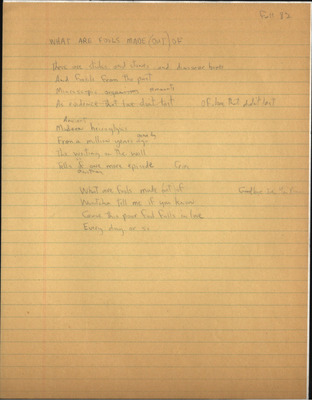 Fall 82
WHAT ARE FOOLS MADE (OUT) OF
There are sticks and stones and dinosaur bones
And fossils from the past
Microscopic organisms remnants
As evidence that love didn't last Of stars that didn't last
Ancient
Modern hieroglyphs
From a million years ago
The writing on the wall
Tells of one more episode
What are fools made out of
Wontcha tell me if you know
Cause this poor fool falls in love
Every day or so